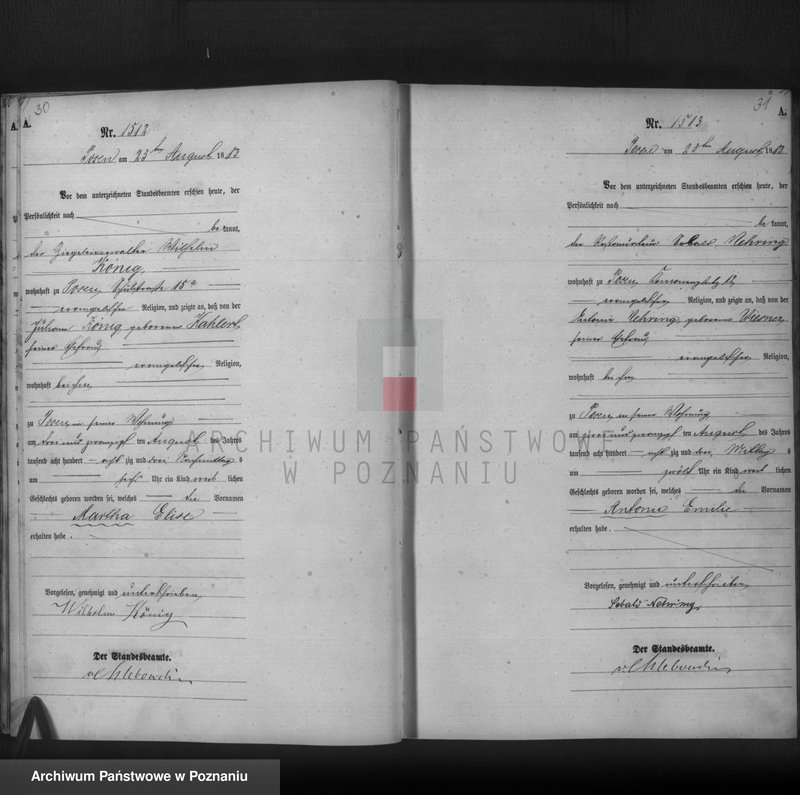 30
A.
A.
Nr. 1512
Posen am 25ten August 1883
Vor dem unterzeichneten Standesbeamten erschien heute, der
Persönlichkeit nach
be kannt,
der Ziegeleiverwalter Wilhelm
König,
wohnhaft zu Posen,
evangelischer Religion, und zeigte an, daß von der
König geborenen Kahlert,
seiner Ehefrau
evangelischer Religion,
wohnhaft bei ihm,
zu Posen in seiner Wohnung
am drei und zwanzig ten August des Jahres
tausend acht hundert acht zig und drei,
um sechs Uhr ein Kind weib lichen
Geschlechts geboren worden sei, welches die Vornamen
Martha Elise
erhalten habe.
Vorgelesen, genehmigt und unterschrieben
Wilhelm König
Der Standesbeamte.
31
A.
Nr. 1513
Posen am 25ten August 1883
Vor dem unterzeichneten Standesbeamten erschien heute, der
Persönlichkeit nach
be kannt,
der Nehring
wohnhaft zu Posen,
evangelischer Religion, und zeigte an, daß von der
Nehring, geborenen
seiner Ehefrau
evangelischer Religion,
wohnhaft bei ihm
zu Posen in seiner Wohnung
am zwei und zwanzig ten August des Jahres
tausend acht hundert acht zig und drei,
um zwölf Uhr ein Kind weib lichen
Geschlechts geboren worden sei, welches die Vornamen
Antonie Emilie
erhalten habe.
Vorgelesen, genehmigt und unterschrieben
Sebald Nehring,
Der Standesbeamte.
ARCHIWUM PAŃSTWOWE
W POZNANIU
Archiwum Państwowe w Poznaniu